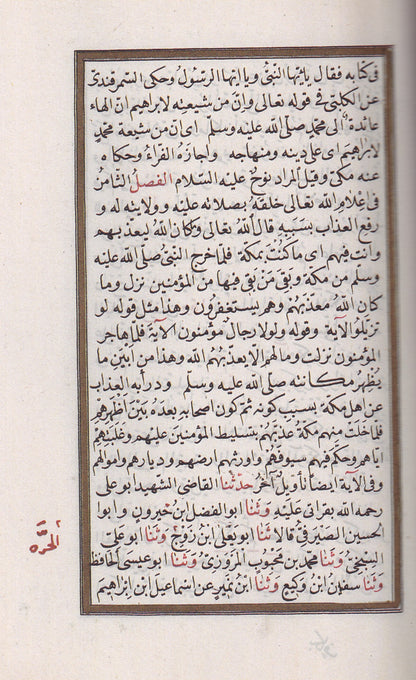 فى كتابه فقال ياايها النبىّ وياايها الرسول وحكى السمرقندى
عن الكلبىّ فى قوله تعالى وانّ من شيعته لابراهيم انّ الهاء
عائدة الى محمّد صلّى الله عليه وسلّم اى انّ من شيعة محمّد
لابراهيم اى على دينه ومنهاجه واجازه الفرّاء وحكاه
عنه مكىّ وقيل المراد نوح عليه السّلام الفصل الثامن
فى اعلام الله تعالى خلقه بصلاته عليه وولايته له و
رفع العذاب بسببه قال الله تعالى وما كان الله ليعذّبهم
وانت فيهم اى ما كنت بمكة فلمّا خرج النبىّ صلّى الله عليه
وسلّم من مكّة وبقى من بقى فيها من المؤمنين نزل وما
كان الله معذّبهم وهم يستغفرون وهذا مثل قوله لو
تزيّلوا الآية وقوله ولولا رجال مؤمنون الآية فلمّا هاجر
المؤمنون نزلت وما لهم الّا يعذّبهم الله وهذا من ابين ما
يظهر مكانته صلّى الله عليه وسلّم ودرأ به العذاب
عن اهل مكّة بسبب كونه ثم كون اصحابه بعده بين اظهرهم
فلمّا خلت منهم مكّة عذّبهم بتسليط المؤمنين عليهم وغلبتهم
اياهم وحكم فيهم سيوفهم واورثهم ارضهم وديارهم واموالهم
وفى الآية ايضا تأويل آخر حدّثنا القاضى الشهيد ابو على
رحمه الله بقراءتى عليه وثنا ابو الفضل ابن خيرون وابو
الحسين الصيرفى قالا ثنا ابو يعلى ابن زوج وثنا ابو على
السنجى وثنا محمد بن محبوب المروزى وثنا ابو عيسى الحافظ
وثنا سفين ابن وكيع وثنا ابن نمير عن اسماعيل ابن ابراهيم
الحرّه